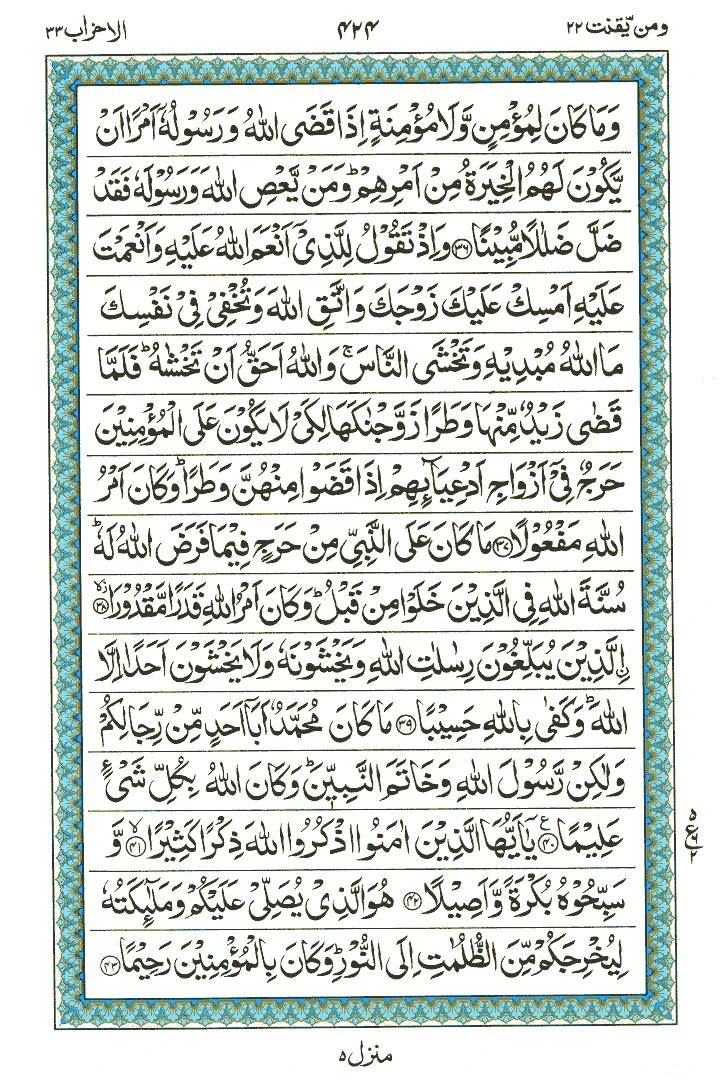 ومن يّقنت ٢٢
٤٢٤
الاحزاب ٣٣
وَمَا كَانَ لِمُؤْمِنٍ وَّلَا مُؤْمِنَةٍ اِذَا قَضَى اللّٰهُ وَرَسُوْلُهٗۤ اَمْرًا اَنْ
يَّكُوْنَ لَهُمُ الْخِيَرَةُ مِنْ اَمْرِهِمْ ؕ وَمَنْ يَّعْصِ اللّٰهَ وَرَسُوْلَهٗ فَقَدْ
ضَلَّ ضَلٰلًا مُّبِيْنًا ﴿٣٦﴾ وَاِذْ تَقُوْلُ لِلَّذِىْۤ اَنْعَمَ اللّٰهُ عَلَيْهِ وَاَنْعَمْتَ
عَلَيْهِ اَمْسِكْ عَلَيْكَ زَوْجَكَ وَاتَّقِ اللّٰهَ وَتُخْفِىْ فِىْ نَفْسِكَ
مَا اللّٰهُ مُبْدِيْهِ وَتَخْشَى النَّاسَ ۚ وَاللّٰهُ اَحَقُّ اَنْ تَخْشٰهُ ؕ فَلَمَّا
قَضٰى زَيْدٌ مِّنْهَا وَطَرًا زَوَّجْنٰكَهَا لِكَىْ لَا يَكُوْنَ عَلَى الْمُؤْمِنِيْنَ
حَرَجٌ فِىْۤ اَزْوَاجِ اَدْعِيَآئِهِمْ اِذَا قَضَوْا مِنْهُنَّ وَطَرًا ؕ وَكَانَ اَمْرُ
اللّٰهِ مَفْعُوْلًا ﴿٣٧﴾ مَا كَانَ عَلَى النَّبِىِّ مِنْ حَرَجٍ فِيْمَا فَرَضَ اللّٰهُ لَهٗ ؕ
سُنَّةَ اللّٰهِ فِى الَّذِيْنَ خَلَوْا مِنْ قَبْلُ ؕ وَكَانَ اَمْرُ اللّٰهِ قَدَرًا مَّقْدُوْرًا ﴿٣٨﴾
اِۨلَّذِيْنَ يُبَلِّغُوْنَ رِسٰلٰتِ اللّٰهِ وَيَخْشَوْنَهٗ وَلَا يَخْشَوْنَ اَحَدًا اِلَّا
اللّٰهَ ؕ وَكَفٰى بِاللّٰهِ حَسِيْبًا ﴿٣٩﴾ مَا كَانَ مُحَمَّدٌ اَبَاۤ اَحَدٍ مِّنْ رِّجَالِكُمْ
وَلٰكِنْ رَّسُوْلَ اللّٰهِ وَخَاتَمَ النَّبِيّٖنَ ؕ وَكَانَ اللّٰهُ بِكُلِّ شَىْءٍ
عَلِيْمًا ﴿٤٠﴾ يٰۤاَيُّهَا الَّذِيْنَ اٰمَنُوا اذْكُرُوا اللّٰهَ ذِكْرًا كَثِيْرًا ﴿٤١﴾ وَّ
سَبِّحُوْهُ بُكْرَةً وَّاَصِيْلًا ﴿٤٢﴾ هُوَ الَّذِىْ يُصَلِّىْ عَلَيْكُمْ وَمَلٰٓئِكَتُهٗ
لِيُخْرِجَكُمْ مِّنَ الظُّلُمٰتِ اِلَى النُّوْرِ ؕ وَكَانَ بِالْمُؤْمِنِيْنَ رَحِيْمًا ﴿٤٣﴾
٥
ع ٦
٢
منزل ٥